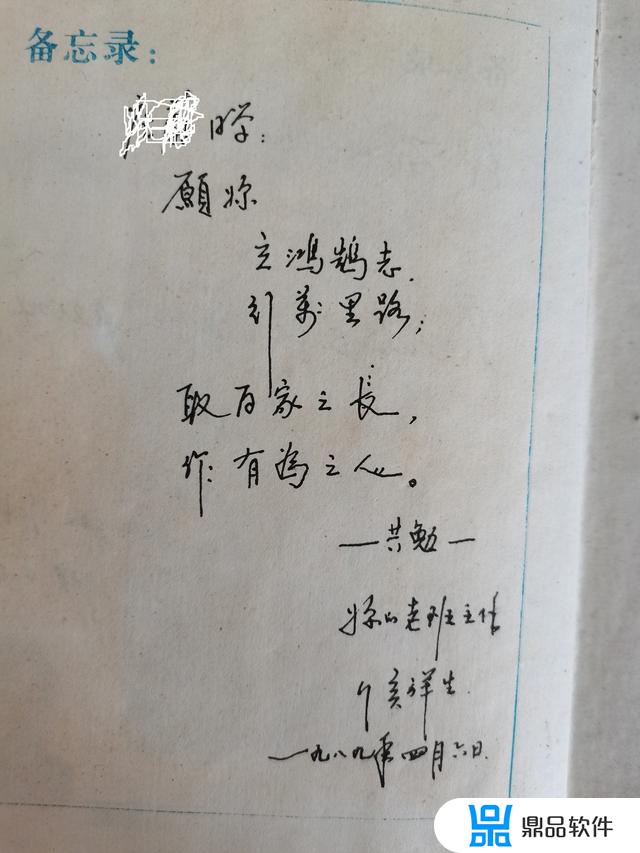 备忘录:
同学:
願妳
立鴻鵠志.
引萬里路;
取百家之長,
作有為之人。
—共勉—
妳的老班主任
祥生
一九八九年四月六日.
鼎品软件